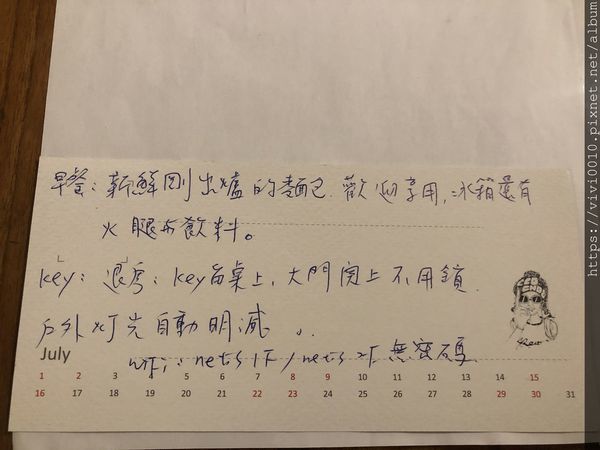 早餐：新鮮剛出爐的麵包.歡迎享用,冰箱還有
火腿和飲料。
key：退房：key留桌上,大門関上不用鎖.
戶外灯光自動明滅。
WiFi：nets 1F / nets 2F 無密碼.
July
1 2 3 4 5 6 7 8 9 10 11 12 13 14 15
16 17 18 19 20 21 22 23 24 25 26 27 28 29 30 31
https://vivi0010.pixnet.net/album